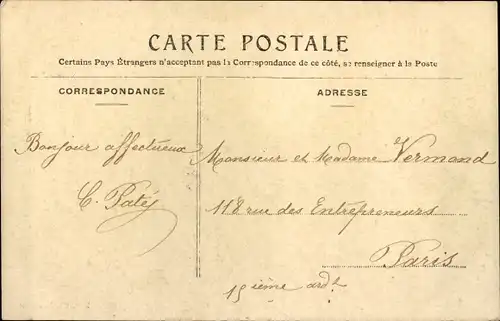 CARTE POSTALE
Certains Pays Étrangers n'acceptant pas la Correspondance de ce côté, se renseigner à la Poste
CORRESPONDANCE
ADRESSE
Bonjour affectueux
C. Paté
Monsieur et Madame Vermond
118 rue des Entrepreneurs
Paris
15ième ardt